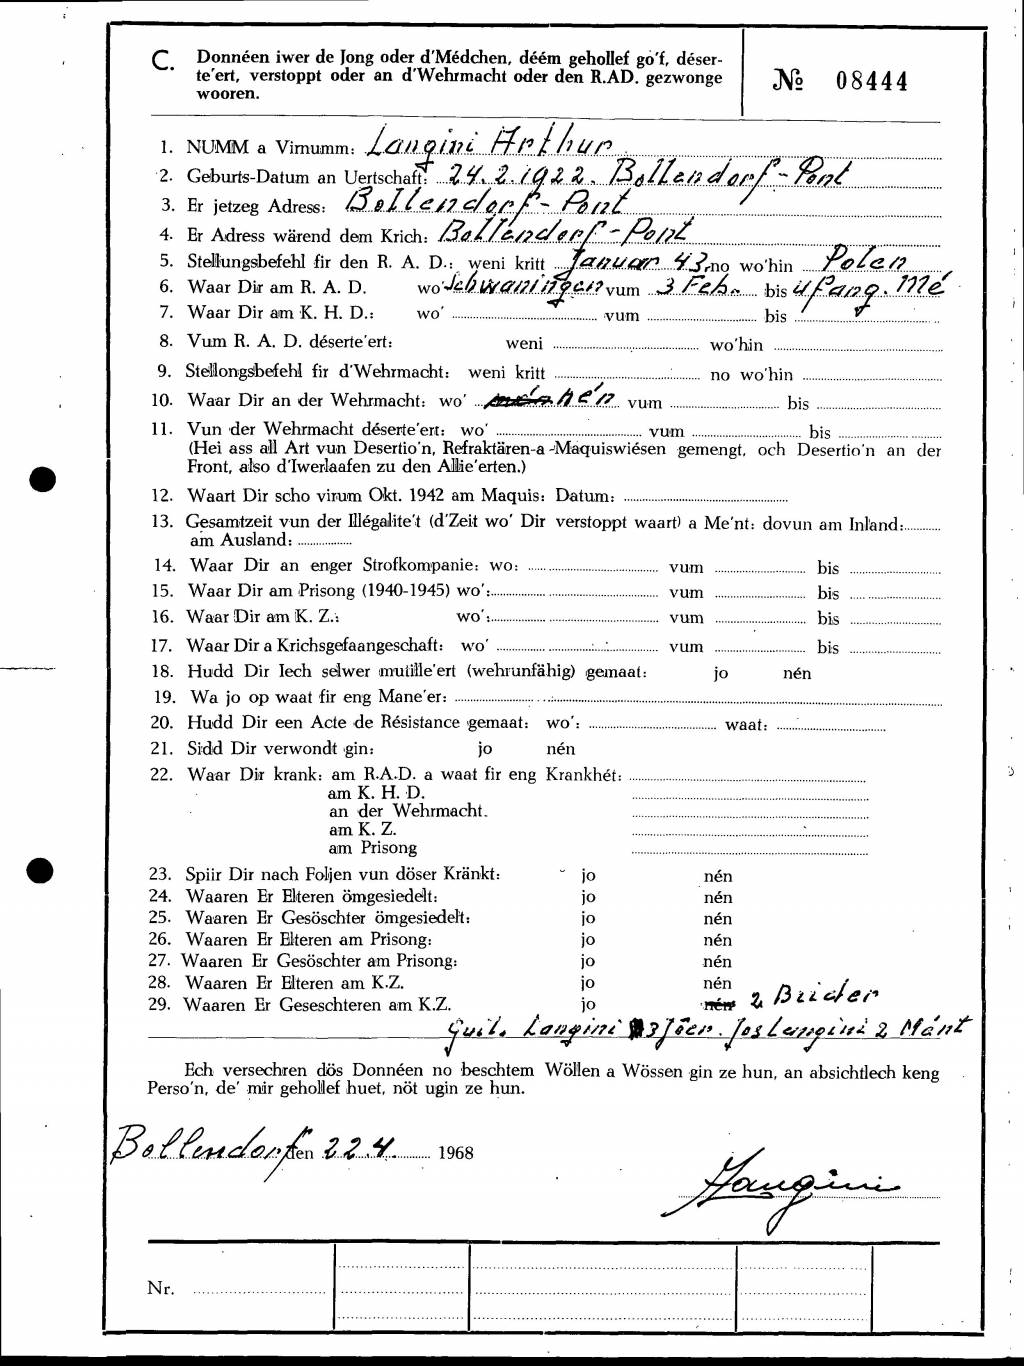 C. Donnéen iwer de Jong oder d'Médchen, déém gehollef go'f, déser-
te'ert, verstoppt oder an d'Wehrmacht oder den R.AD. gezwonge
wooren.
№ 08444
1. NUMM a Virnumm: Langini Arthur
2. Geburts-Datum an Uertschaft: 24.2.1922. Bollendorf-Pont
3. Er jetzeg Adress: Bollendorf-Pont
4. Er Adress wärend dem Krich: Bollendorf-Pont
5. Stellungsbefehl fir den R. A. D.: weni kritt Januar 43. no wo'hin Polen
6. Waar Dir am R. A. D. wo' Schwaningen vum 3 Feb. bis Ufang. Mé
7. Waar Dir am K. H. D.: wo' vum bis
8. Vum R. A. D. déserte'ert: weni wo'hin
9. Stellongsbefehl fir d'Wehrmacht: weni kritt no wo'hin
10. Waar Dir an der Wehrmacht: wo' nén vum bis
11. Vun der Wehrmacht déserte'ert: wo' vum bis
(Hei ass all Art vun Desertio'n, Refraktären-a-Maquiswiésen gemengt, och Desertio'n an der
Front, also d'Iwerlaafen zu den Allie'erten.)
12. Waart Dir scho virum Okt. 1942 am Maquis: Datum:
13. Gesamtzeit vun der Illégalite't (d'Zeit wo' Dir verstoppt waart) a Me'nt: dovun am Inland:
am Ausland:
14. Waar Dir an enger Strofkompanie: wo: vum bis
15. Waar Dir am Prisong (1940-1945) wo': vum bis
16. Waar Dir am K. Z.: wo': vum bis
17. Waar Dir a Krichsgefaangeschaft: wo' vum bis
18. Hudd Dir Iech selwer mutille'ert (wehrunfähig) gemaat: jo nén
19. Wa jo op waat fir eng Mane'er:
20. Hudd Dir een Acte de Résistance gemaat: wo': waat:
21. Sidd Dir verwondt gin: jo nén
22. Waar Dir krank: am R.A.D. a waat fir eng Krankhét:
am K. H. D.
an der Wehrmacht.
am K. Z.
am Prisong
23. Spiir Dir nach Foljen vun döser Kränkt: jo nén
24. Waaren Er Elteren ömgesiedelt: jo nén
25. Waaren Er Gesöschter ömgesiedelt: jo nén
26. Waaren Er Elteren am Prisong: jo nén
27. Waaren Er Gesöschter am Prisong: jo nén
28. Waaren Er Elteren am K.Z. jo nén
29. Waaren Er Geseschteren am K.Z. jo nén 2 Brider
Guil. Langini 3 Joer. Jos Langini 2 Mánt
Ech versechren dös Donnéen no beschtem Wöllen a Wössen gin ze hun, an absichtlech keng
Perso'n, de' mir gehollef huet, nöt ugin ze hun.
Bollendorf den 22.4. 1968
Langini
Nr.